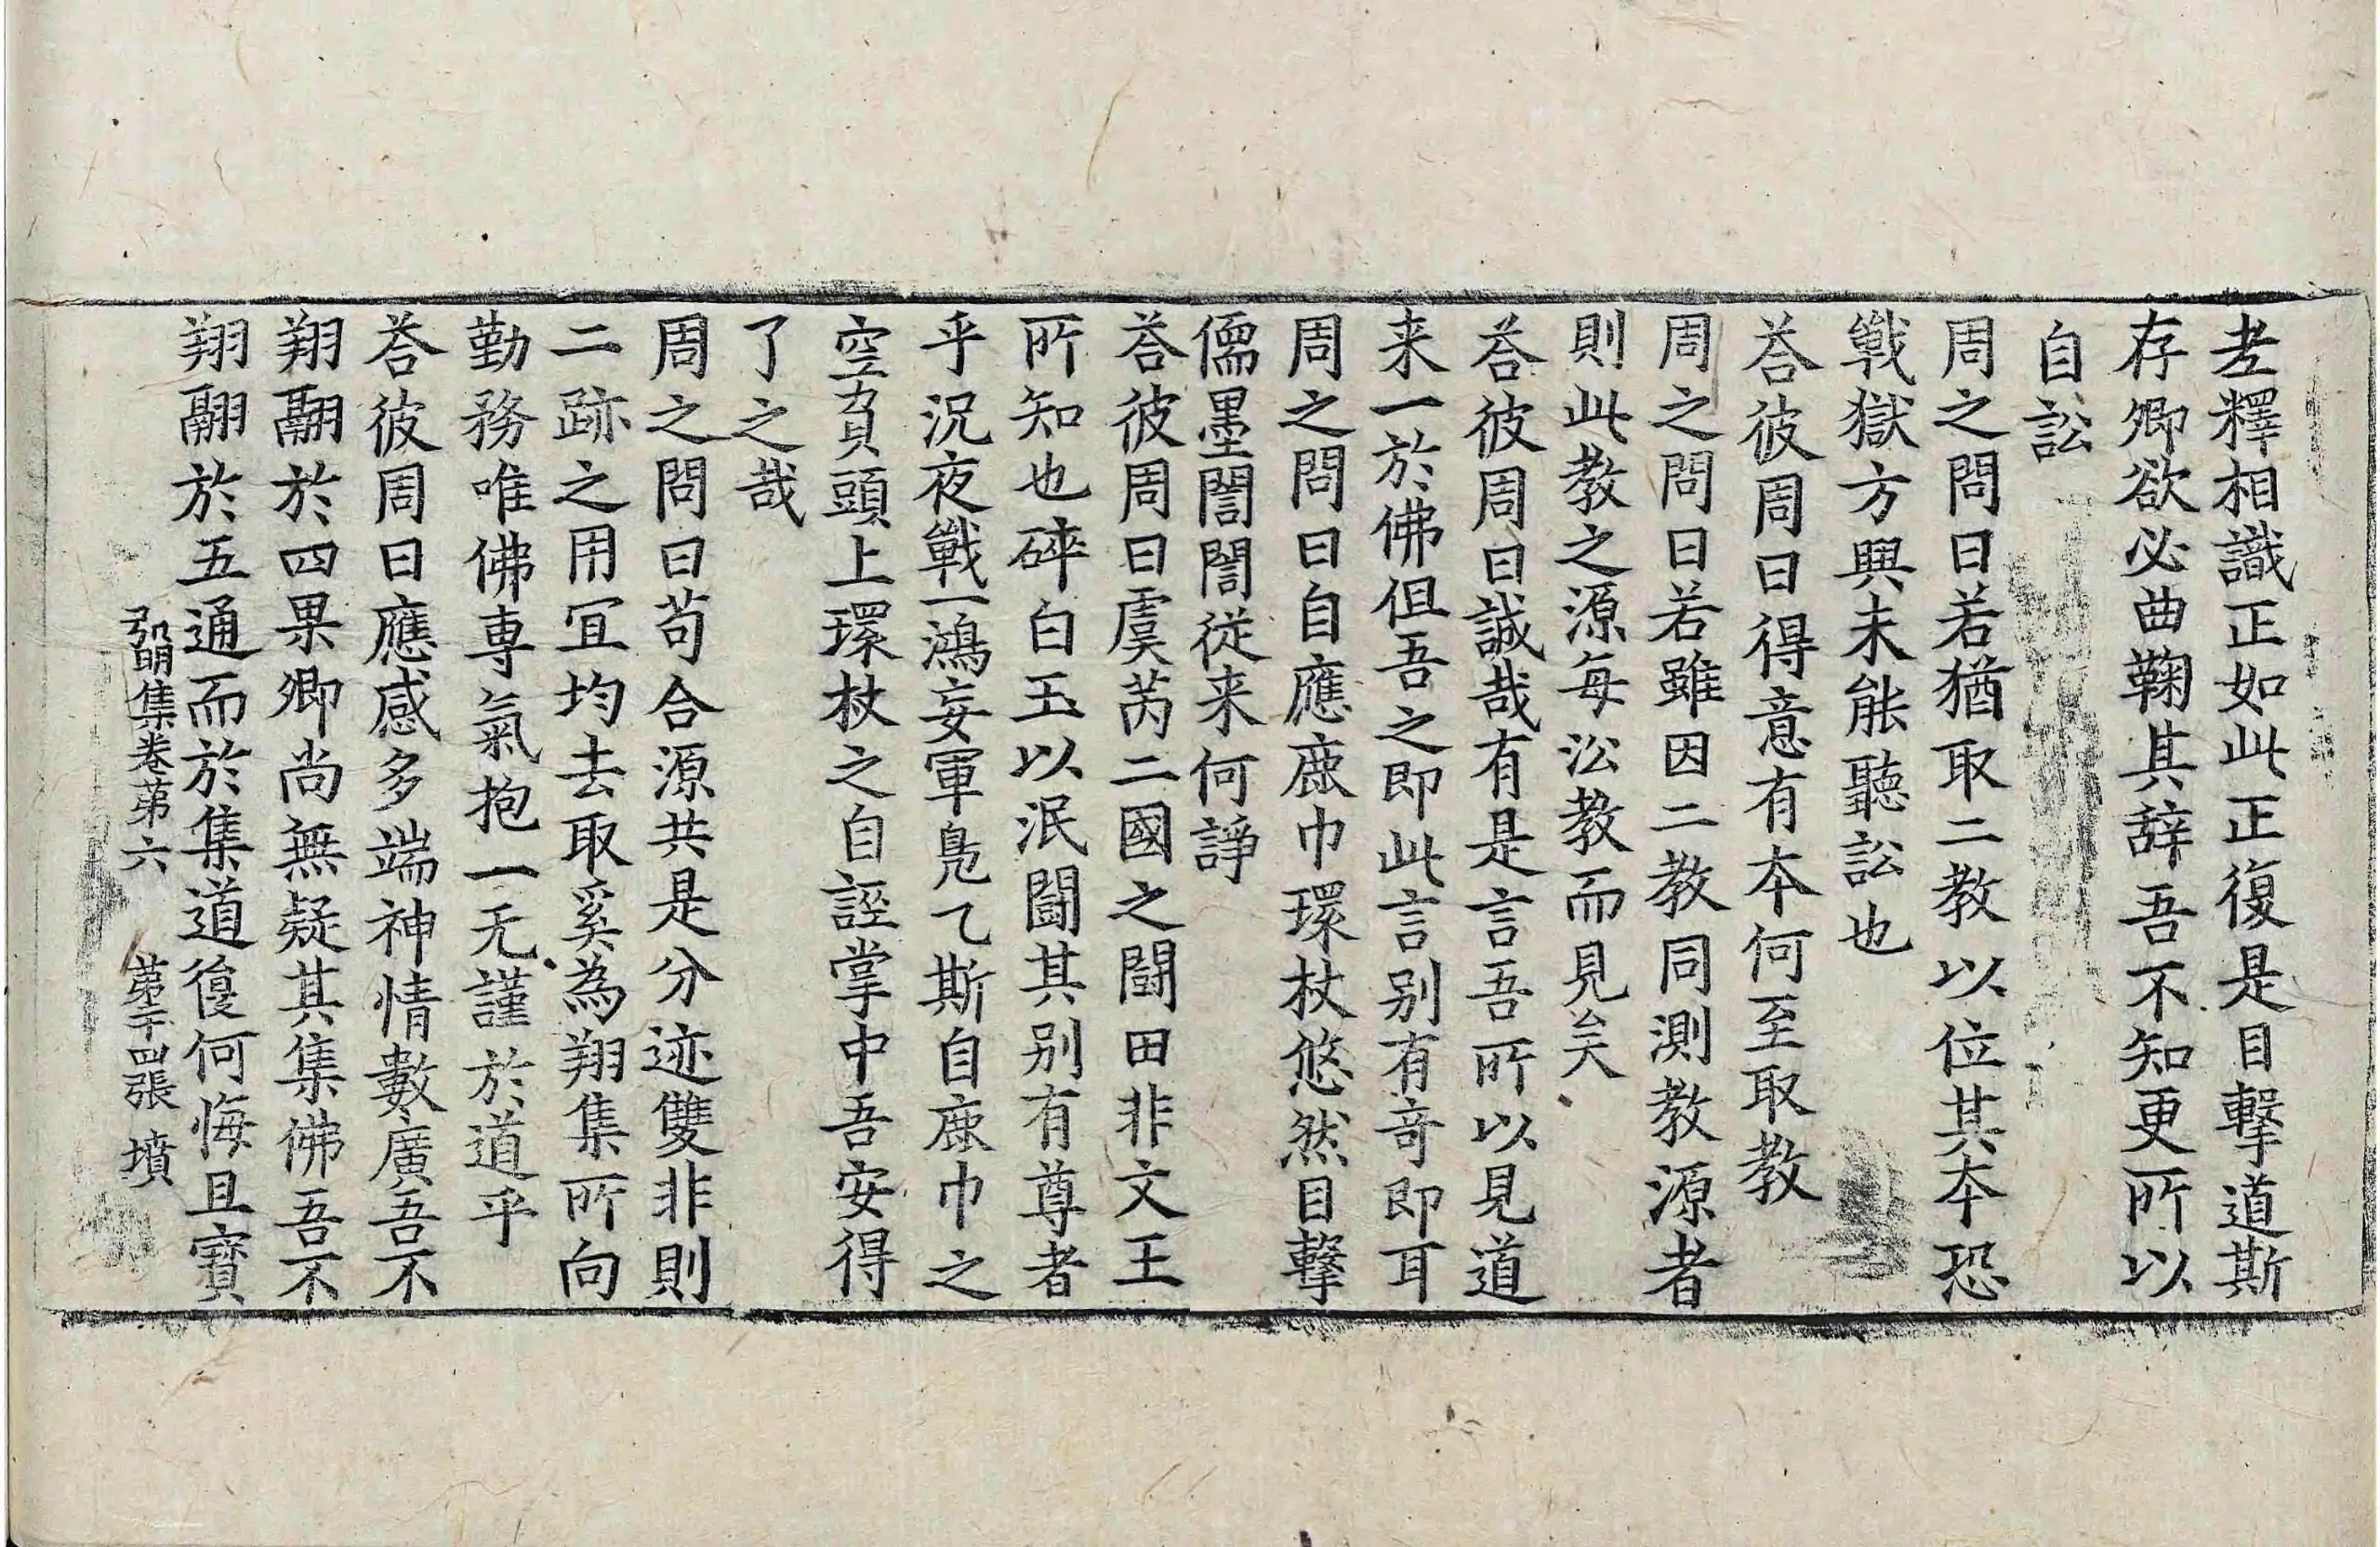 老釋相識正如此正復是目擊道斯
存卿欲必曲鞠其辞吾不知更所以
自訟
周之問曰若猶取二教以位其本恐
戰獄方興未能聽訟也
荅彼周曰得意有本何至取教
周之問曰若雖因二教同測教源者
則此教之源每沿教而見矣
荅彼周曰誠哉有是言吾所以見道
来一於佛但吾之即此言别有奇即耳
周之問曰自應鹿巾環杖悠然目擊
儒墨誾誾從来何諍
荅彼周曰虞芮二國之鬪田非文王
所知也碎白玉以泯鬪其别有尊者
乎況夜戰一鴻妄軍鳧乙斯自鹿巾之
空負頭上環杖之自誣掌中吾安得
了之哉
周之問曰苟合源共是分迹雙非則
二跡之用冝均去取奚為翔集所向
勤務唯佛専氣抱一无謹於道乎
荅彼周曰應感多端神情數廣吾不
翔翮於四果卿尚無疑其集佛吾不
翔翮於五通而於集道復何悔且寶
弘明集卷苐六 苐二十四張 墳